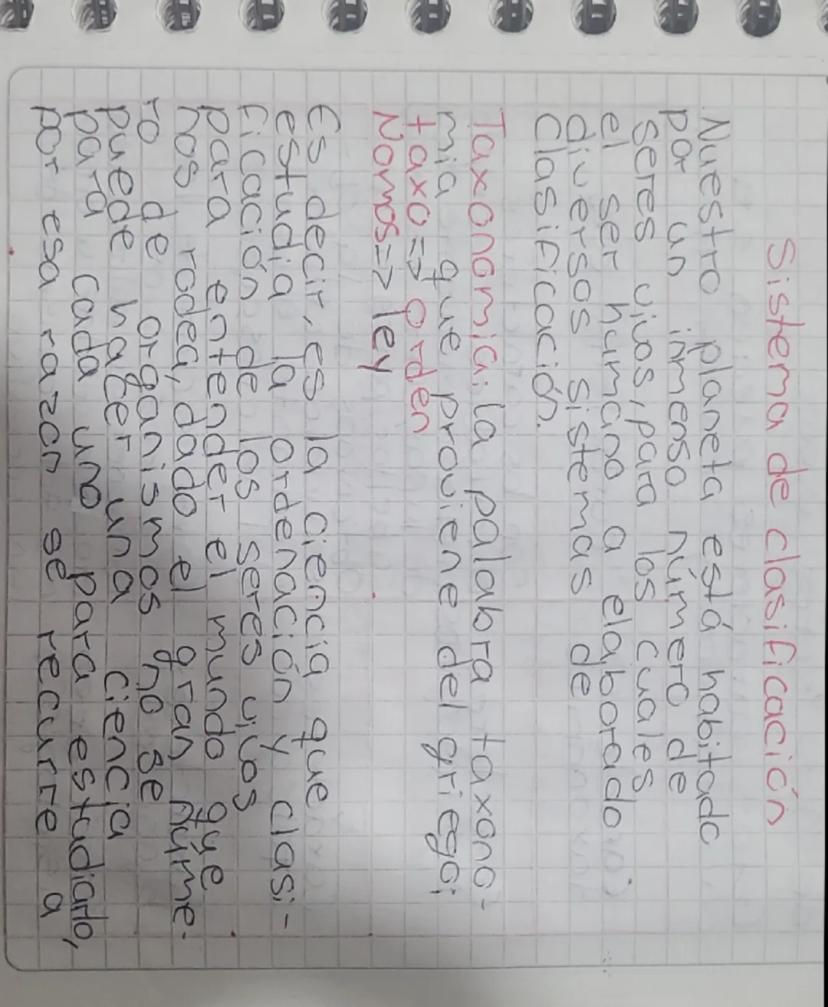 Sistema de clasificación
Nuestro planeta está habitado
por un inmenso número de
seres vivos, para los cuales
el ser humano a elaborado
diversos sistemas de
clasificación.
Taxonomía: la palabra taxono-
mia que proviene del griego;
taxo => orden
Nomos => ley
Es decir, es la ciencia que
estudia la ordenación y clasi-
ficación de los seres vivos
para entender el mundo que
nos rodea, dado el gran núme-
ro de organismos no se
puede hacer una ciencia
para cada uno para estudiarlo,
por esa razon se recurre a